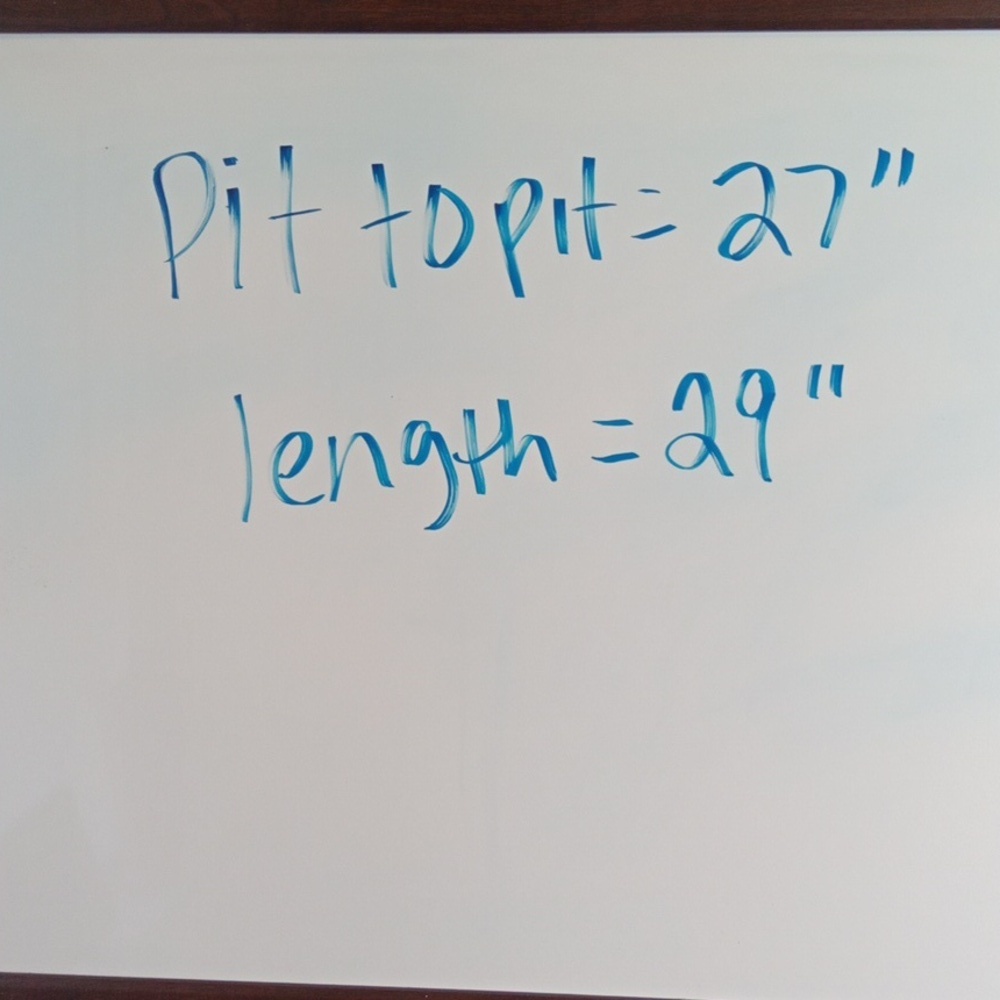 Pit to pit = 27"
length = 29"